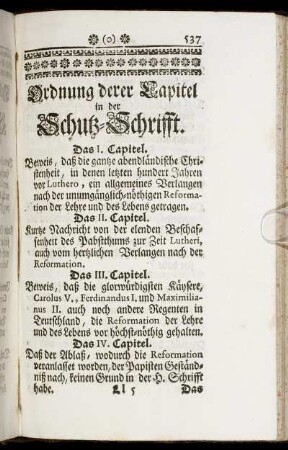 ❁ (o) ❁ 537
Ordnung derer Capitel
in der
Schutz-Schrifft.
Das I. Capitel.
Beweis, daß die gantze abendländische Chri-
stenheit, in denen letzten hundert Jahren
vor Luthero, ein allgemeines Verlangen
nach der unumgänglich-nöthigen Reforma-
tion der Lehre und des Lebens getragen.
Das II. Capitel.
Kurtze Nachricht von der elenden Beschaf-
fenheit des Pabstthums zur Zeit Lutheri,
auch vom hertzlichen Verlangen nach der
Reformation.
Das III. Capitel.
Beweis, daß die glorwürdigsten Käysere,
Carolus V., Ferdinandus I, und Maximilia-
nus II. auch noch andere Regenten in
Teutschland, die Reformation der Lehre
und des Lebens vor höchst-nöthig gehalten.
Das IV. Capitel.
Daß der Ablaß, wodurch die Reformation
veranlasset worden, der Papisten Geständ-
niß nach, keinen Grund in der H. Schrifft
habe. Ll 5 Das